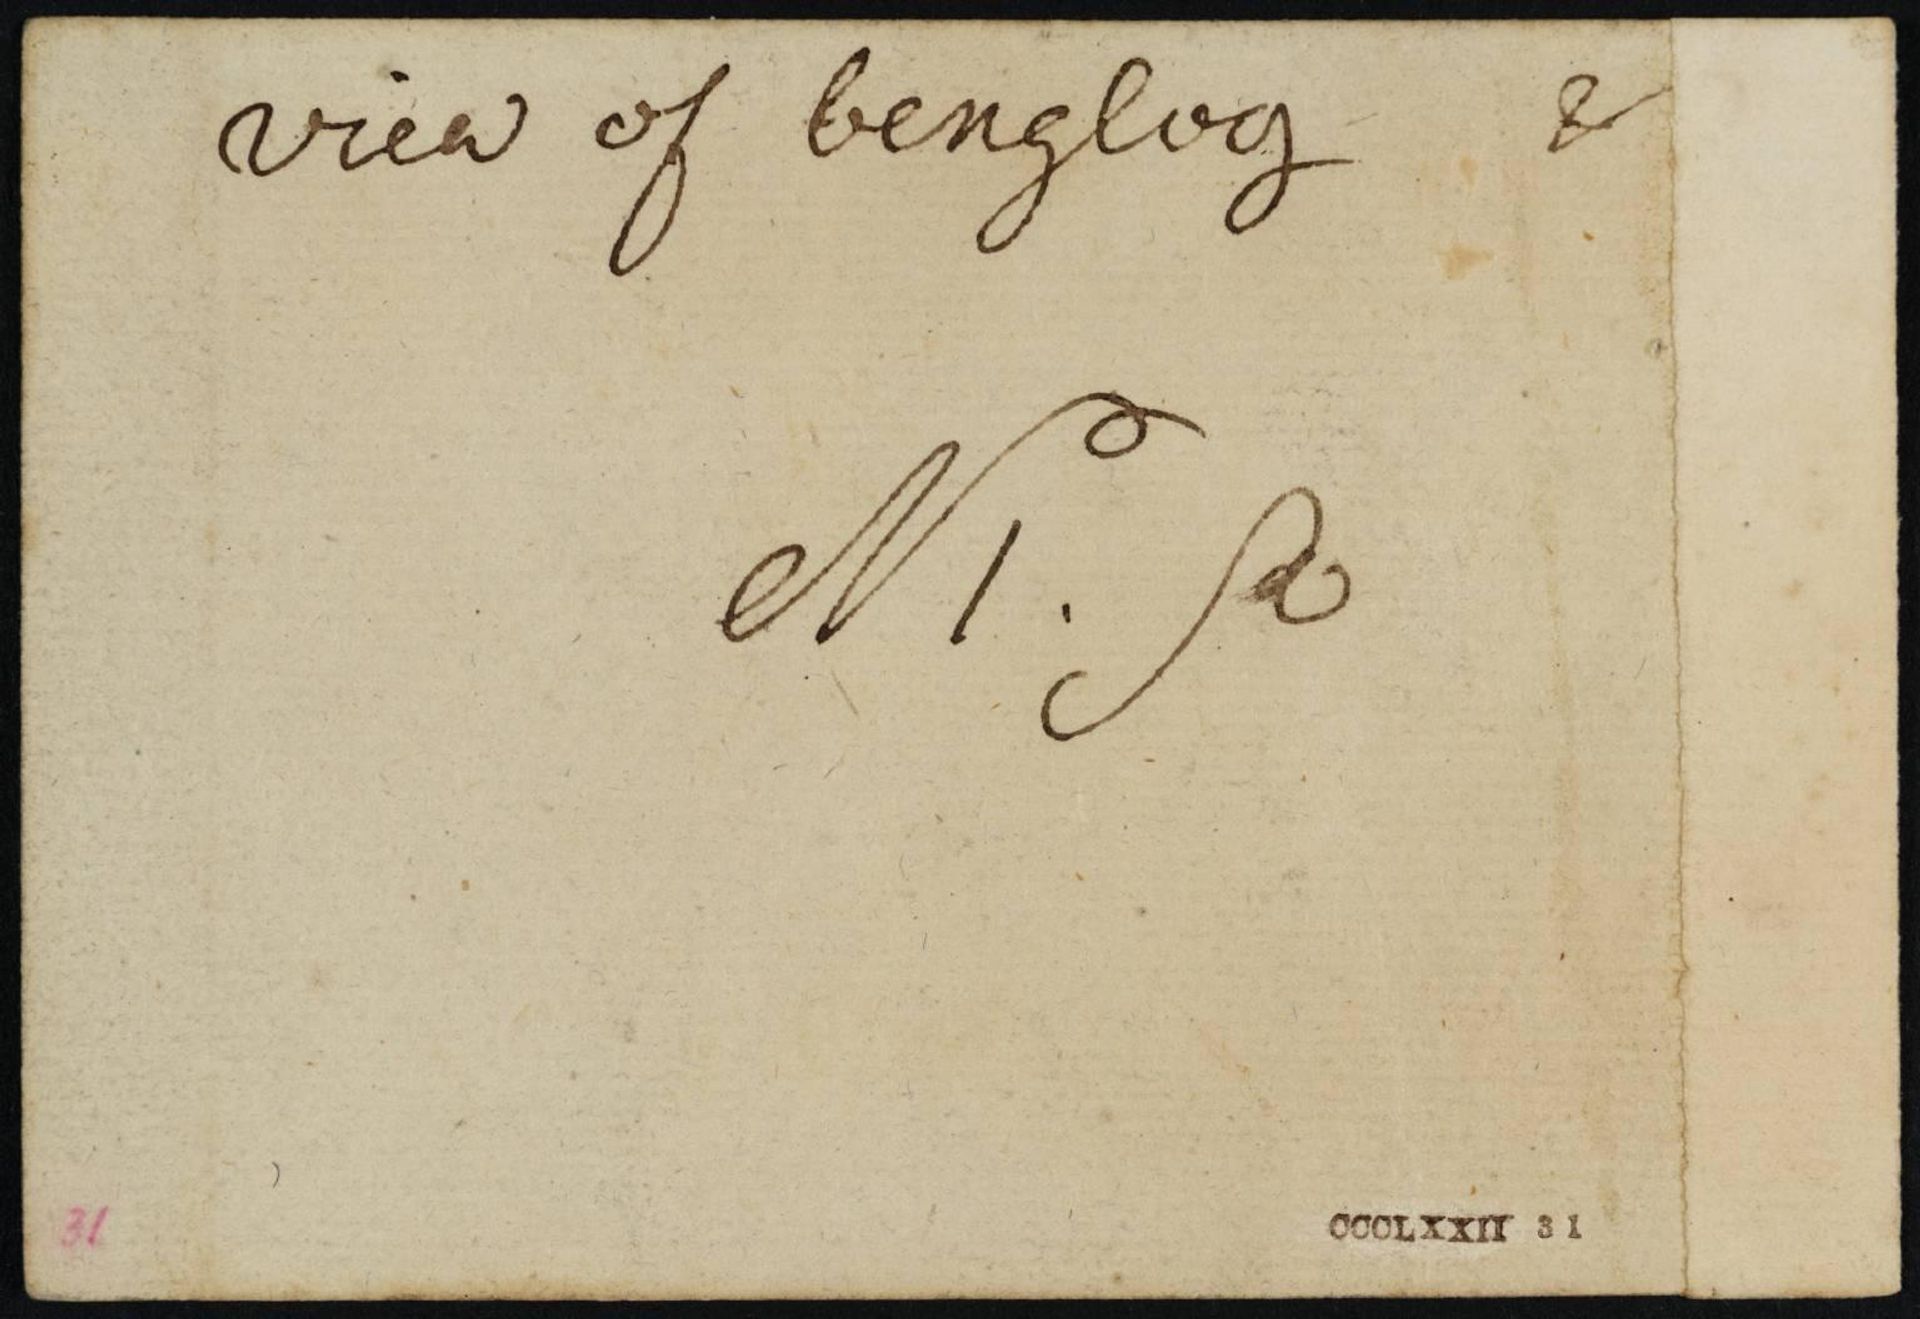 view of benglog &
N 1. 2
31
CCCLXXII 31